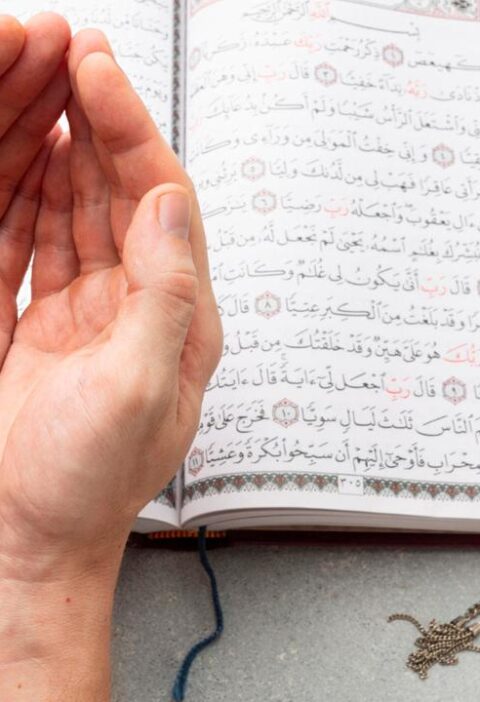 بِسْمِ ٱللَّهِ ٱلرَّحْمَٰنِ ٱلرَّحِيمِ
كٓهيعٓصٓ ١ ذِكْرُ رَحْمَتِ رَبِّكَ عَبْدَهُۥ زَكَرِيَّا
نَادَىٰ رَبَّهُۥ نِدَآءً خَفِيًّا ٣ قَالَ رَبِّ إِنِّى وَهَنَ ٱلْعَظْمُ
وَٱشْتَعَلَ ٱلرَّأْسُ شَيْبًا وَلَمْ أَكُنۢ بِدُعَآئِكَ
٤ وَإِنِّى خِفْتُ ٱلْمَوَٰلِىَ مِن وَرَآءِى
عَاقِرًا فَهَبْ لِى مِن لَّدُنكَ وَلِيًّا ٥ يَرِثُنِى
ءَالِ يَعْقُوبَ وَٱجْعَلْهُ رَبِّ رَضِيًّا ٦
بِغُلَٰمٍ ٱسْمُهُۥ يَحْيَىٰ لَمْ نَجْعَل لَّهُۥ مِن قَبْلُ
قَالَ رَبِّ أَنَّىٰ يَكُونُ لِى غُلَٰمٌ وَكَانَتِ
وَقَدْ بَلَغْتُ مِنَ ٱلْكِبَرِ عِتِيًّا ٨ قَالَ
هُوَ عَلَىَّ هَيِّنٌ وَقَدْ خَلَقْتُكَ مِن قَبْلُ
٩ قَالَ رَبِّ ٱجْعَل لِّىٓ ءَايَةً قَالَ ءَايَتُكَ
ٱلنَّاسَ ثَلَٰثَ لَيَالٍ سَوِيًّا ١٠ فَخَرَجَ عَلَىٰ قَوْمِهِۦ
فَأَوْحَىٰٓ إِلَيْهِمْ أَن سَبِّحُوا۟ بُكْرَةً وَعَشِيًّا ١١
٣٠٥